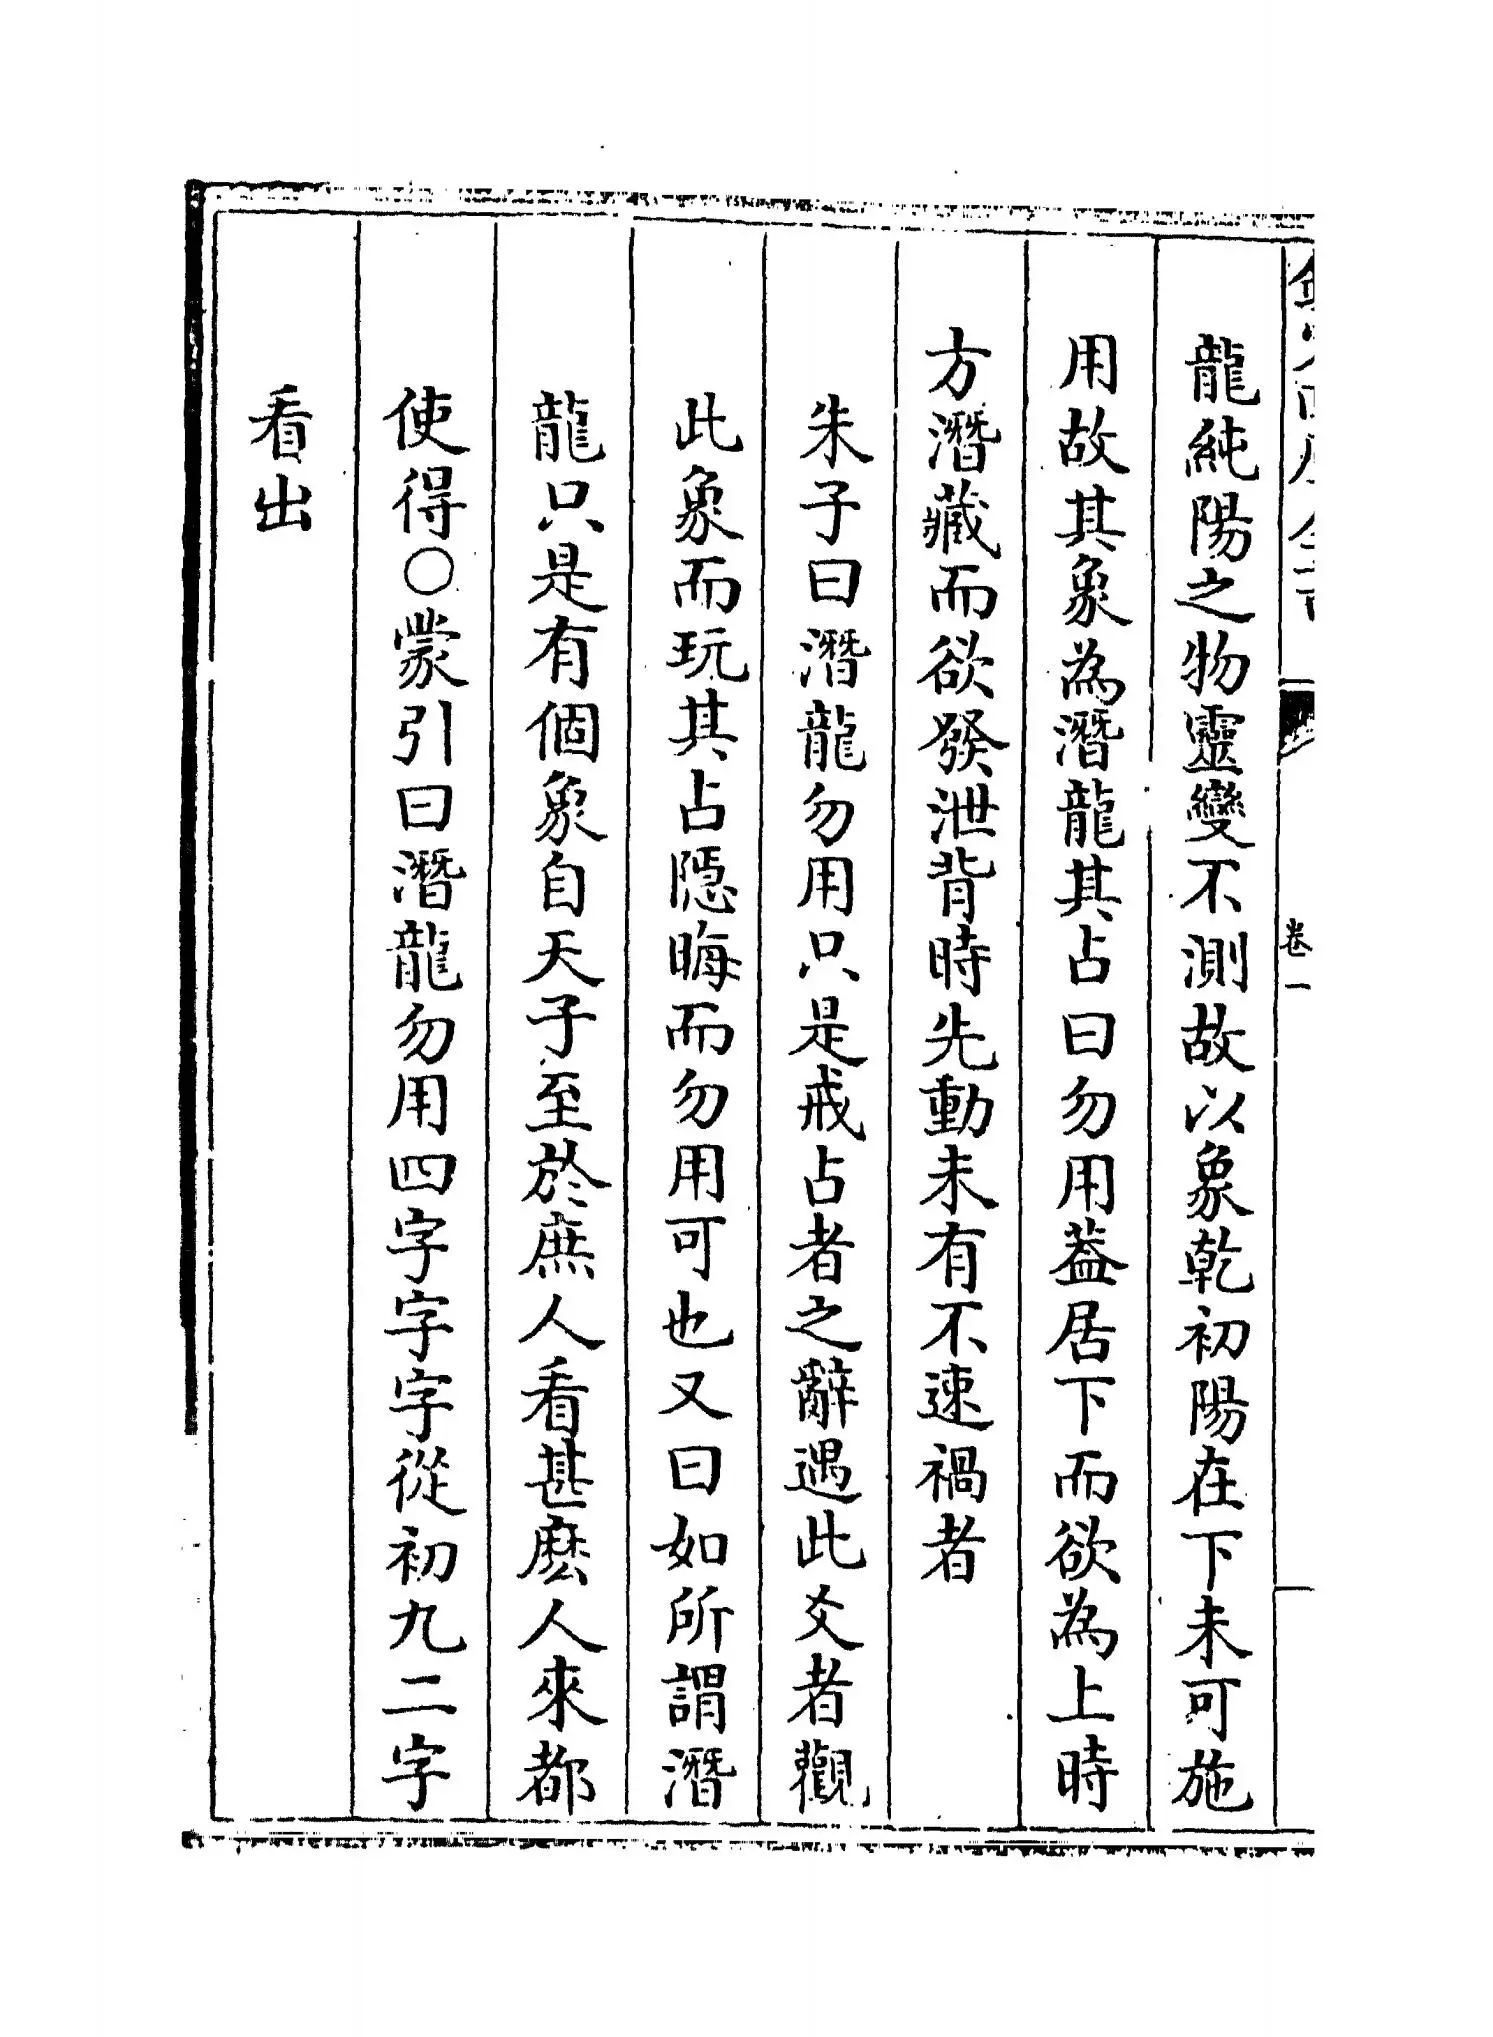 卷一
龍純陽之物靈變不測故以象乾初陽在下未可施
用故其象為潛龍其占曰勿用蓋居下而欲為上時
方潛藏而欲發泄背時先動未有不速禍者
朱子曰潛龍勿用只是戒占者之辭遇此爻者觀
此象而玩其占隱晦而勿用可也又曰如所謂潛
龍只是有個象自天子至於庶人看甚麽人來都
使得○蒙引曰潛龍勿用四字字字從初九二字
看出